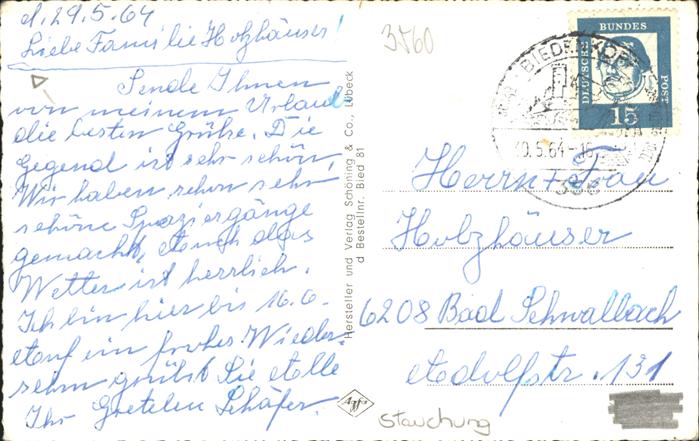 d. 29.5.64
Liebe Familie Holzhäuser!
Sende Ihnen
von meinem Urlaub
die besten Grüße. Die
Gegend ist sehr schön,
Wir haben schon sehr
schöne Spaziergänge
gemacht, Auch das
Wetter ist herrlich.
Ich bin hier bis 16.6.
Auf ein frohes Wieder-
sehn grüßt Sie Alle
Ihr Gretelen Schäfer.
Hersteller und Verlag Schöning & Co., Lübeck
d Bestellnr. Bied 81
Agfa
3560
DEUTSCHE
BUNDES
POST
15
BIEDENKOPF
30.5.64-16
356
Herrn + Frau
Holzhäuser
6208 Bad Schwalbach
Adolfstr. 131
Stauchung